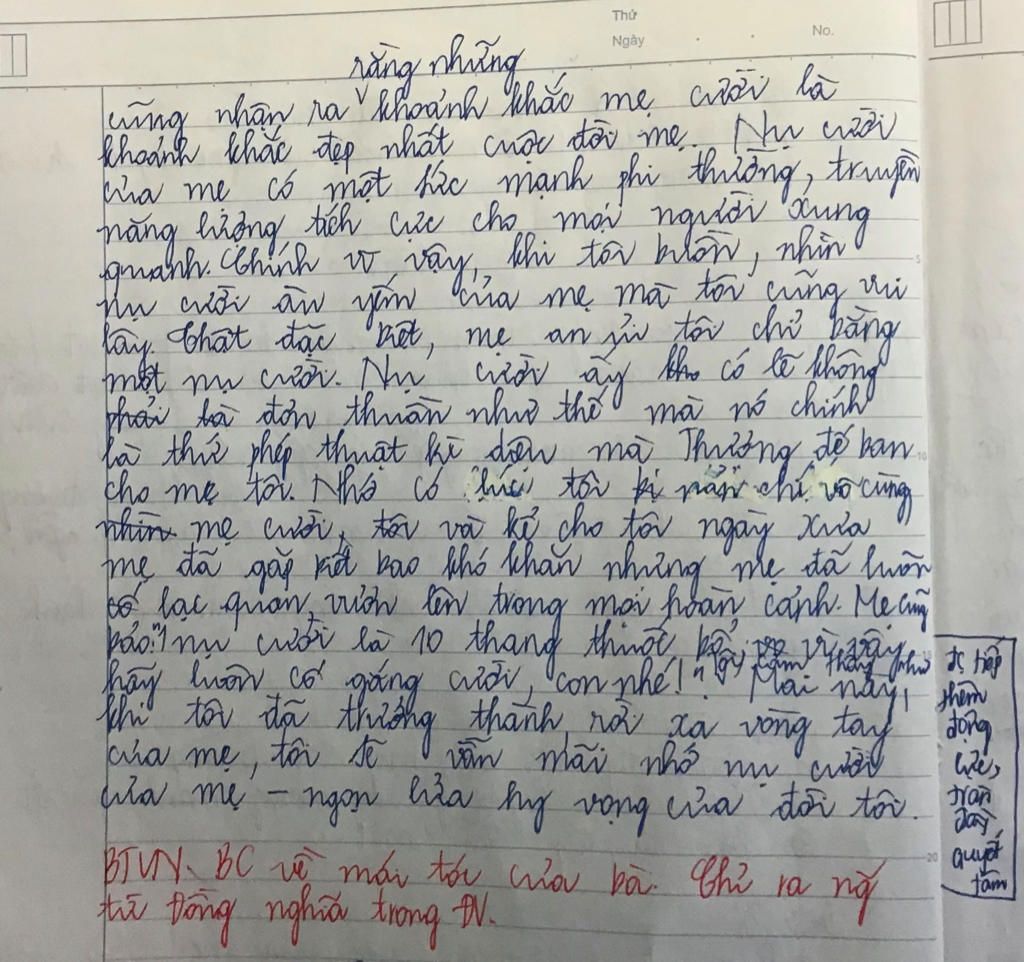 Thứ
Ngày
No.
rằng những
cũng nhận ra khoảnh khắc mẹ cười là
khoảnh khắc đẹp nhất cuộc đời mẹ. Nụ cười
của mẹ có một sức mạnh phi thường, truyền
năng lượng tích cực cho mọi người xung
quanh. Chính vì vậy, khi tôi buồn, nhìn
nụ cười âu yếm của mẹ mà tôi cũng vui
lây. Thật đặc biệt, mẹ an ủi tôi chỉ bằng
một nụ cười. Nụ cười ấy kho có lẽ không
phải là đơn thuần như thế mà nó chính
là thứ phép thuật kì diệu mà Thượng đế ban
cho mẹ tôi. Nhớ có lúc tôi bị nản chí vô cùng
nhìn mẹ cười, tôi và kể cho tôi ngày xưa
mẹ đã gặp biết bao khó khăn nhưng mẹ đã luôn
cố lạc quan, vươn lên trong mọi hoàn cảnh. Mẹ cũng
bảo: "1 nụ cười là 10 thang thuốc bổ, vì vậy
hãy luôn cố gắng cười, con nhé!". Tôi cảm thấy như Mai này,
khi tôi đã trưởng thành, rời xa vòng tay
của mẹ, tôi sẽ vẫn mãi nhớ nụ cười
của mẹ – ngọn lửa hy vọng của đời tôi.
đc tiếp
thêm
động
lực,
tràn
đầy
quyết
tâm
BTVN. BC về mái tóc của bà. Chỉ ra ng~
từ đồng nghĩa trong ĐV.
5
10
20